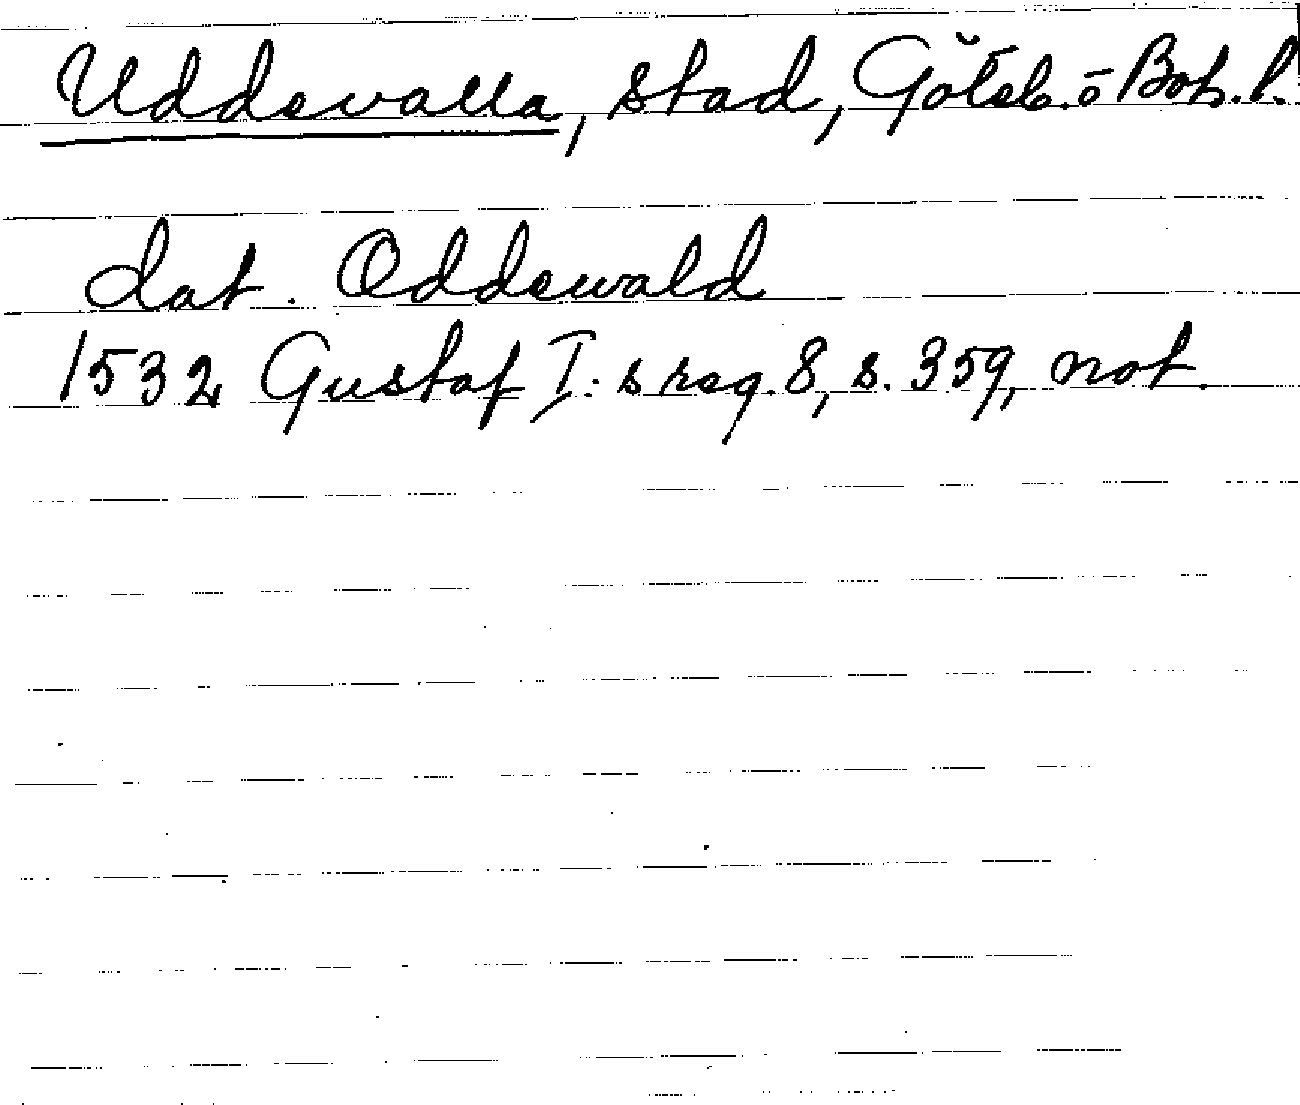 Uddevalla, stad, Göteb. o Boh. l.
dat. Oddewald
1532 Gustaf I:s reg. 8, s. 359, not.